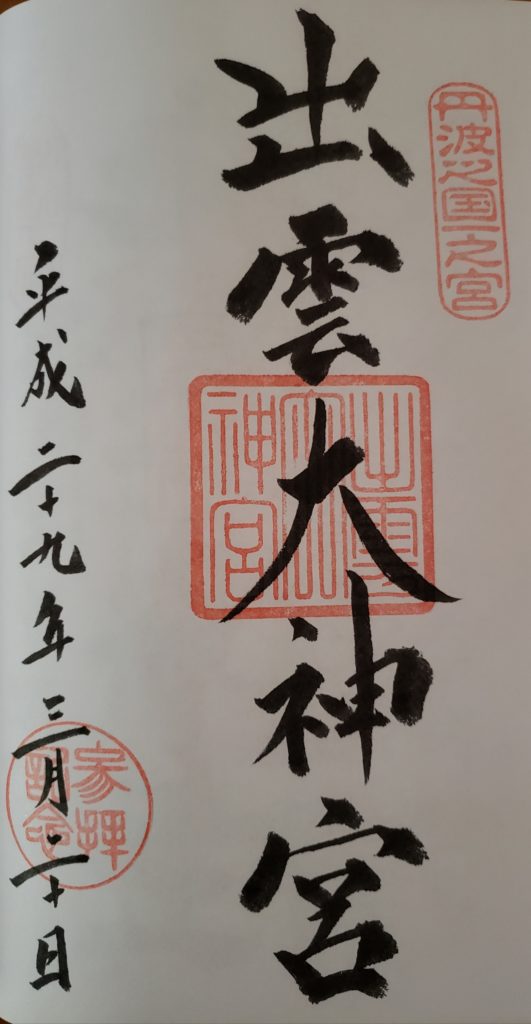 丹波之国一之宮
出雲大神宮
出雲大神宮
平成二十九年三月二十日
参拝記念